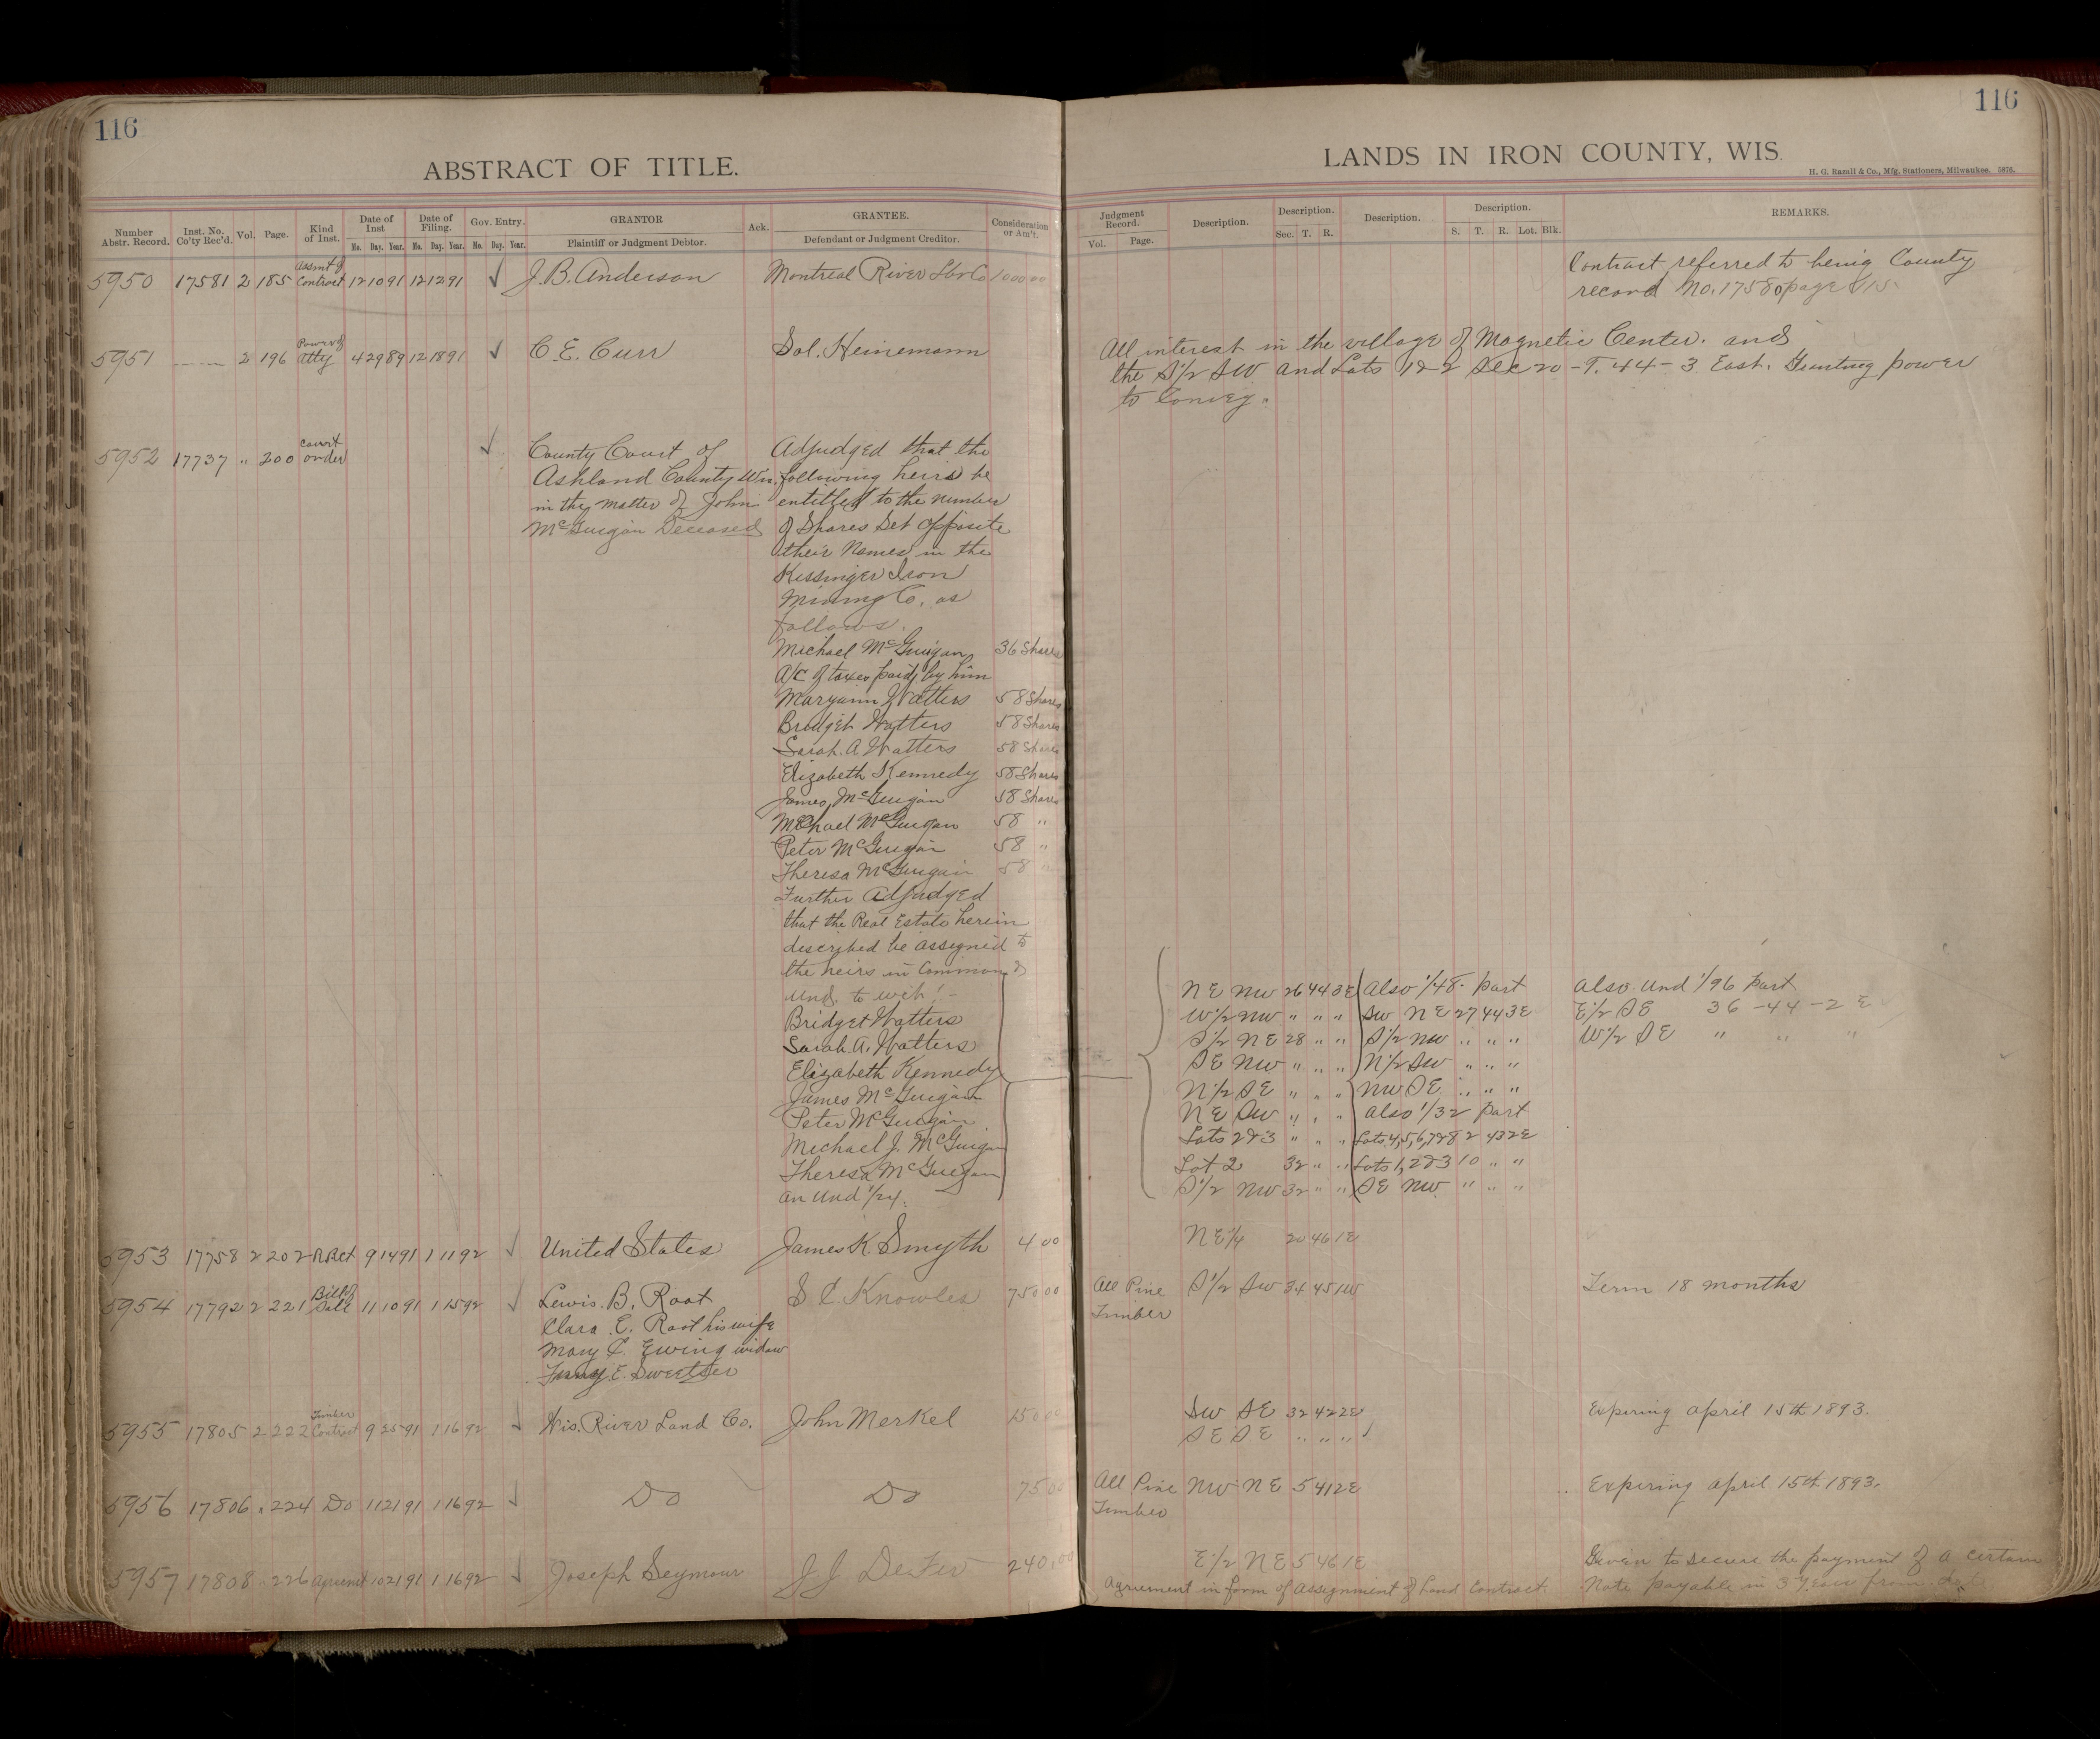 116
ABSTRACT OF TITLE.
Number Abstr. Record. Inst. No. Co'ty Rec'd. Vol. Page. Kind of Inst. Date of Inst Mo. Day. Year. Date of Filing. Mo. Day. Year. Gov. Entry. Mo. Day. Year. GRANTOR Plaintiff or Judgment Debtor. Ack. GRANTEE. Defendant or Judgment Creditor. Consideration or Am't.
5950 17581 2 185 Assmt of Contract 12 10 91 12 12 91 ✓ J. B. Anderson Montreal River Lbr Co 1000 00
5951 —— 2 196 Power of Atty 4 29 89 12 18 91 ✓ C. E. Curr Sol. Heinemann
5952 17737 " 200 Court order ✓ County Court of
Ashland County Wis.
in the matter of John
McGuigan Deceased
Adjudged that the
following heirs be
entitled to the number
of Shares Set Opposite
their Names in the
Kissinger Iron
Mining Co. as
follows.
Michael McGuigan 36 Shares
A/C of taxes paid by him
Maryann Watters 58 Shares
Bridget Watters 58 Shares
Sarah. A. Watters 58 Shares
Elizabeth Kennedy 58 Shares
James McGuigan 58 Shares
Michael McGuigan 58 "
Peter McGuigan 58 "
Theresa McGuigan 58 "
Further Adjudged
that the Real Estate herein
described be assigned to
the heirs in Common &
Und. to wit:-
Bridget Watters
Sarah. A. Watters
Elizabeth Kennedy
James McGuigan
Peter McGuigan
Michael J. McGuigan
Theresa McGuigan
an Und 1/24.
5953 17758 2 202 9 14 91 1 11 92 ✓ United States James K. Smyth 4 00
5954 17792 2 221 Bill of Sale 11 10 91 1 15 92 ✓ Lewis. B. Root S. E. Knowles 750 00
Clara. E. Root his wife
Mary E. Ewing widow
E. Sweetser
5955 17805 2 222 Timber Contract 9 25 91 1 16 92 ✓ Wis. River Land Co. John Merkel 150 00
5956 17806 " 224 Do 11 21 91 1 16 92 ✓ Do Do 75 00
5957 17808 " 226 Agreemt 10 21 91 1 16 92 ✓ Joseph Seymour J J 240.00
116
LANDS IN IRON COUNTY, WIS.
H. G. Razall & Co., Mfg. Stationers, Milwaukee. 5876.
Judgment Record. Vol. Page. Description. Description. Sec. T. R. Description. Description. S. T. R. Lot. Blk. REMARKS.
Contract referred to being County
record No. 17580 page 815
All interest in the village of Magnetic Center. and
the S 1/2 SW and Lots 1 & 2 Sec 20 - T. 44 - 3 East. Granting power
to Convey.
NE NW 26 44 3E Also 1/48. part Also Und 1/96 part
W 1/2 NW " " " SW NE 27 44 3E E 1/2 SE 36 - 44 - 2 E
S 1/2 NE 28 " " S 1/2 NW " " " W 1/2 SE " " "
SE NW " " " N 1/2 SW " " "
N 1/2 SE " " " NW SE " " "
NE SW " " " Also 1/32 part
Lots 2&3 " " " Lots 4,5,6,7&8 2 43 2E
Lot 2 32 " " Lots 1,2&3 10 " "
S 1/2 NW 32 " " SE NW " " "
NE 1/4 20 46 1E
All Pine Timber S 1/2 SW 34 45 1W Term 18 months
SW SE 32 42 2E Expiring April 15th 1893.
SE SE " " "
All Pine Timber NW NE 5 41 2E Expiring April 15th 1893.
E 1/2 NE 5 46 1E Given to secure the payment of a certain
Agreement in form of Assignment of Land Contract. Note payable in 3 Years from